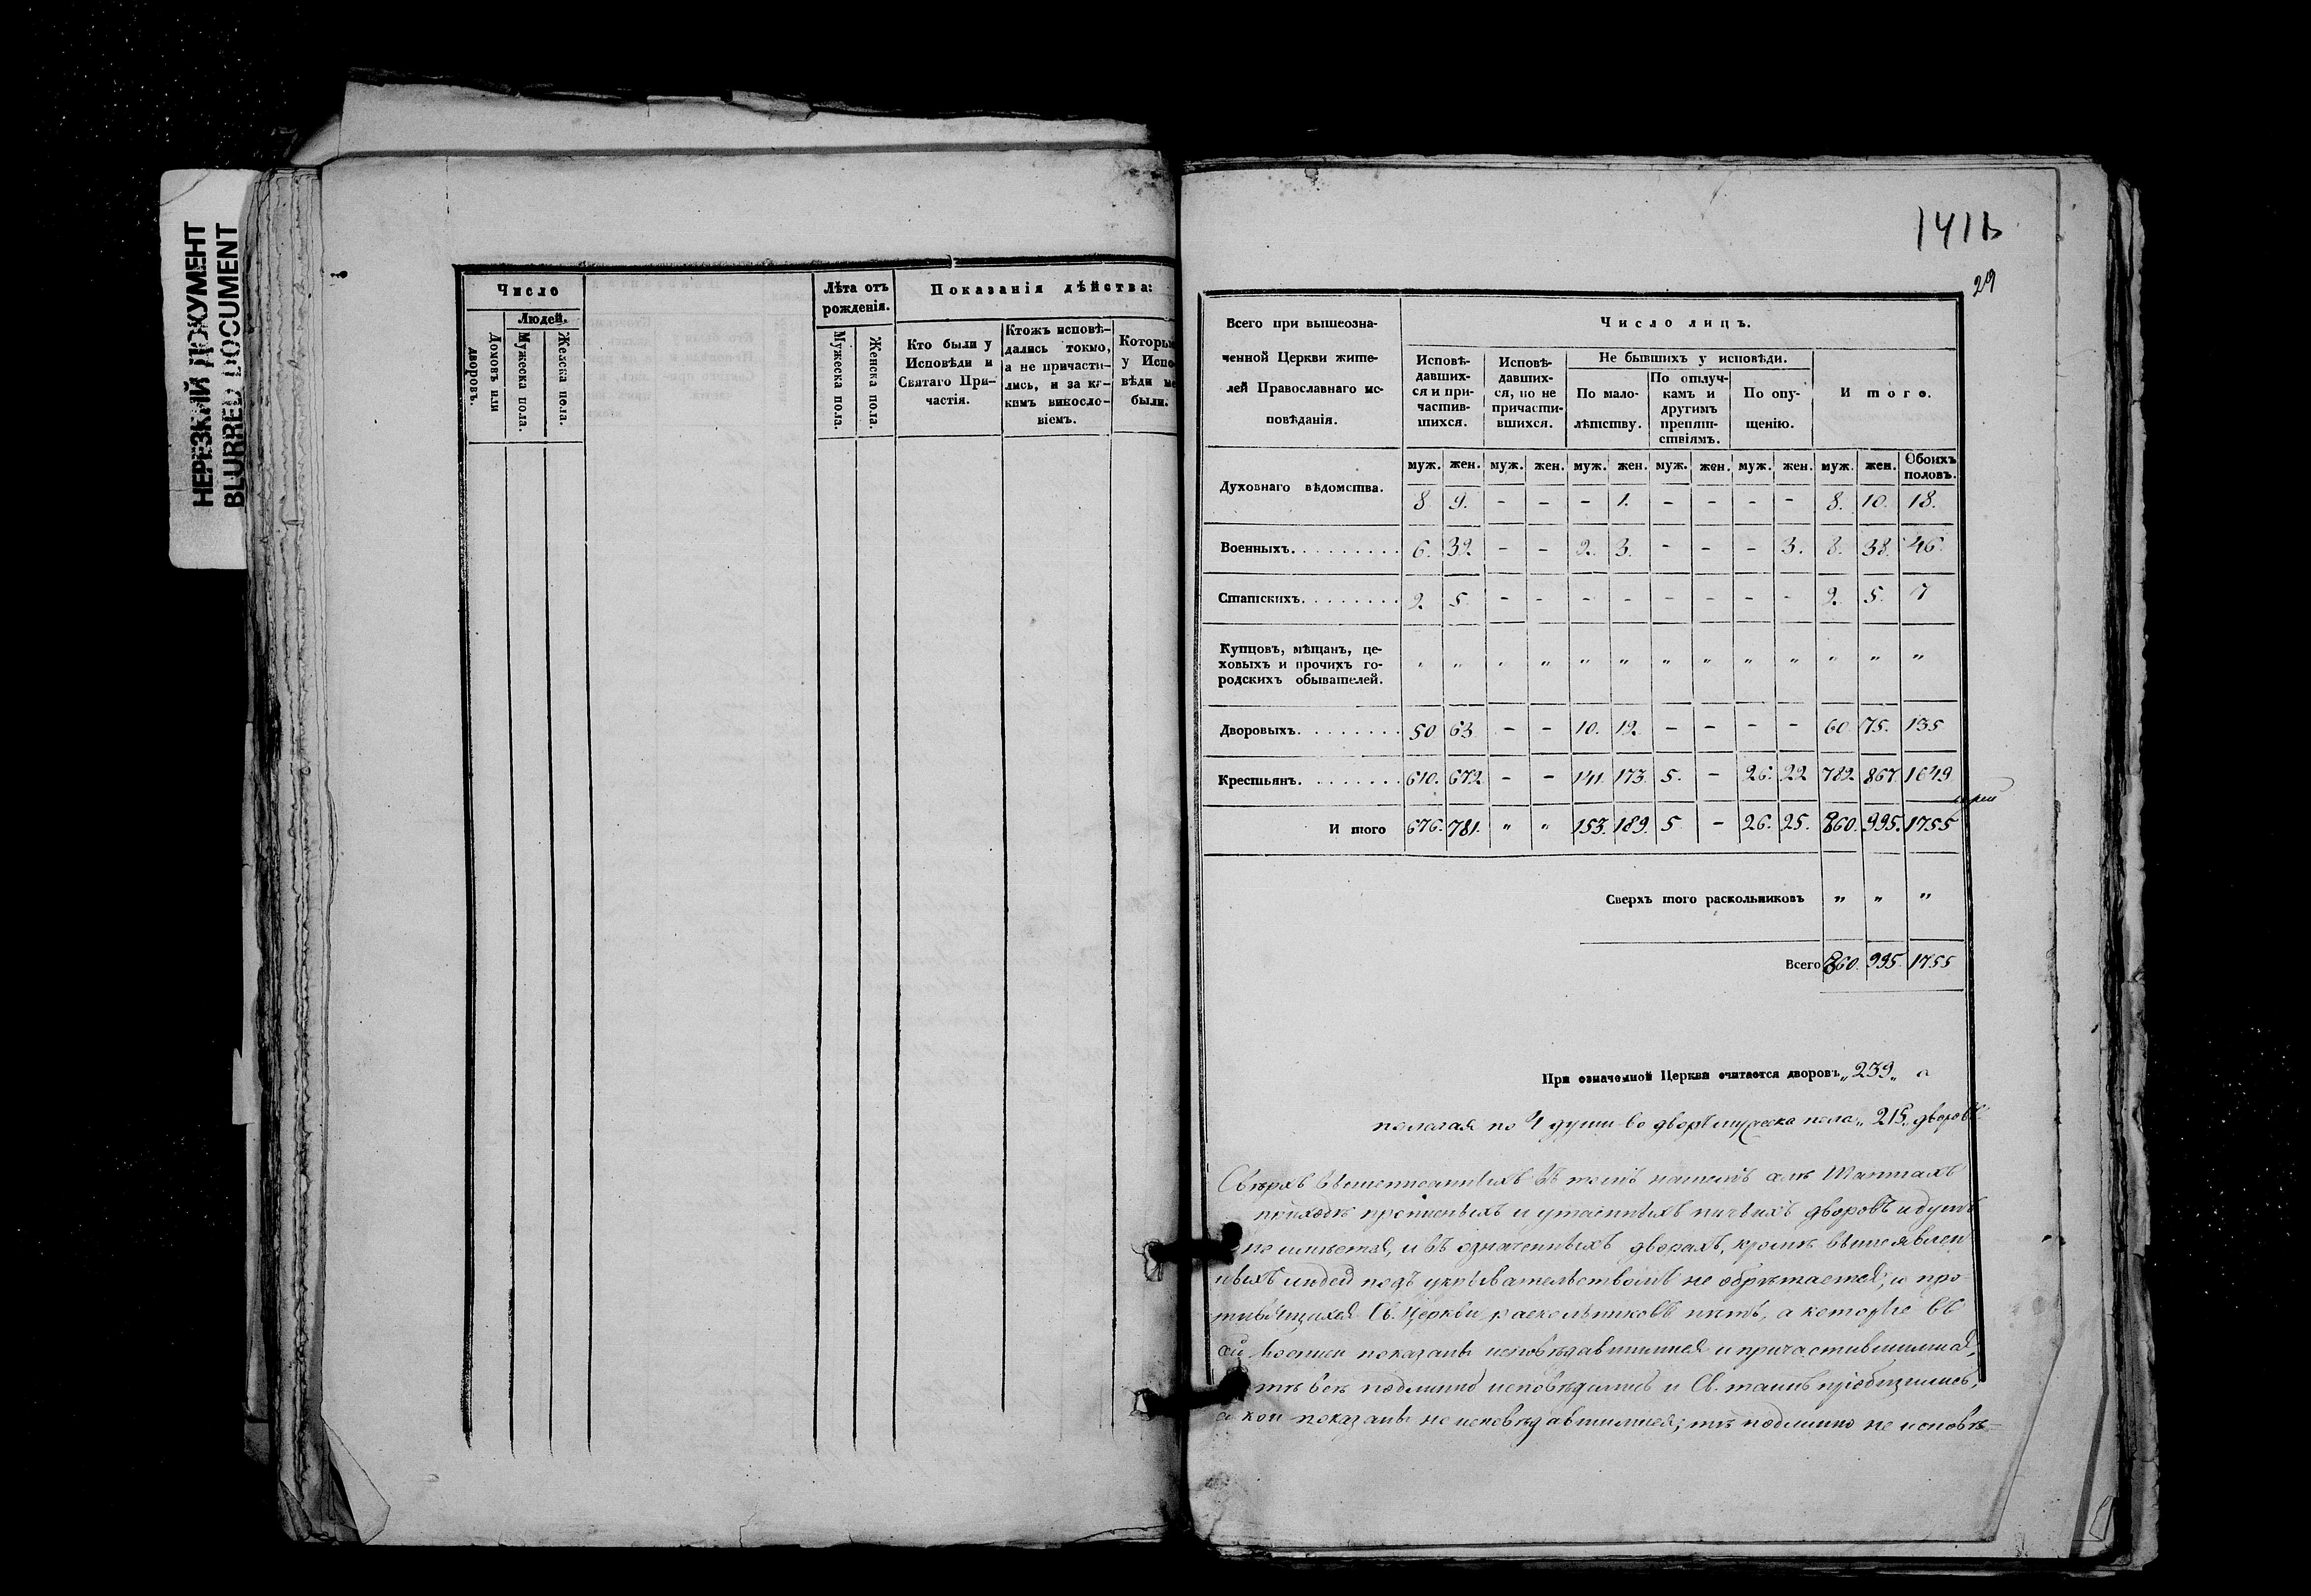 НЕРЕЗКИЙ ДОКУМЕНТ
BLURRED DOCUMENT
Число
Людей.
Домовъ или дворовъ.
Мужеска пола.
Женска пола.
Лѣта отъ рожденія.
Мужеска пола.
Женска пола.
Показанія дѣйства:
Кто были у
Исповѣди и
Святаго При-
частія.
Ктожъ исповѣ-
дались токмо,
а не причасти-
лись, и за ка-
кимъ виносло-
віемъ.
Которы
у Испо
вѣди не
были.
29
Всего при вышеозна-
ченной Церкви жите-
лей Православнаго ис-
повѣданія.
Число лицъ.
Исповѣ-
давших-
ся и при-
частив-
шихся.
Исповѣ-
давших-
ся, но не
причасти-
вшихся.
Не бывшихъ у исповѣди.
По мало-
лѣтству.
По отлуч-
камъ и
другимъ
препят-
ствіямъ.
По опу-
щенію.
Итого.
муж. жен. муж. жен. муж. жен. муж. жен. муж. жен. муж. жен. Обоихъ половъ.
Духовнаго вѣдомства. 8 9. - - - 1. - - - - 8. 10. 18.
Военныхъ. 6. 32 - - 2. 3. - - - 3. 8. 38. 46.
Статскихъ. 2. 5. - - - - - - - - 2. 5. 7
Купцовъ, мѣщанъ, це-
ховыхъ и прочихъ го-
родскихъ обывателей. „ „ „ „ „ „ „ „ „ „ „ „ „
Дворовыхъ. 50 63 - - 10. 12. - - - - 60. 75. 135
Крестьянъ. 610. 672 - - 141. 173. 5. - 26. 22 782. 867. 1649.
И того 676. 781. „ „ 153. 189. 5. - 26. 25. 860. 995. 1755
Сверхъ того раскольниковъ „ „ „
Всего 860. 995. 1755
При означенной Церкви считается дворовъ „239„ а
полагая по 4 души во дворѣ мужеска пола „215„ дворовъ.
Сверхъ вышеписанныхъ въ томъ нашемъ
приходѣ прописныхъ и утаенныхъ ничьихъ дворовъ и душъ
не имѣется, и въ означенныхъ дворахъ, кромѣ вышеявлен
ныхъ людей подъ укрывательствомъ не обрѣтается, и про-
тивящихся Св. Церкви раскольниковъ нѣтъ, а которые въ
сей росписи показаны исповѣдавшимися и причастившимися,
тѣ всѣ подлинно исповѣдались и Св. таинъ пріобщились,
а кои показаны не исповѣдавшимися, тѣ подлинно не исповѣ=